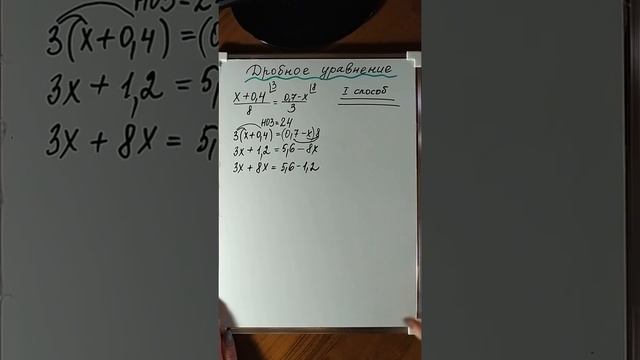 Дробное уравнение
x+0,4/8 |3 = 0,7-x/3 |8
I способ
НОЗ=24
3(x+0,4)=(0,7-x)8
3x+1,2=5,6-8x
3x+8x=5,6-1,2